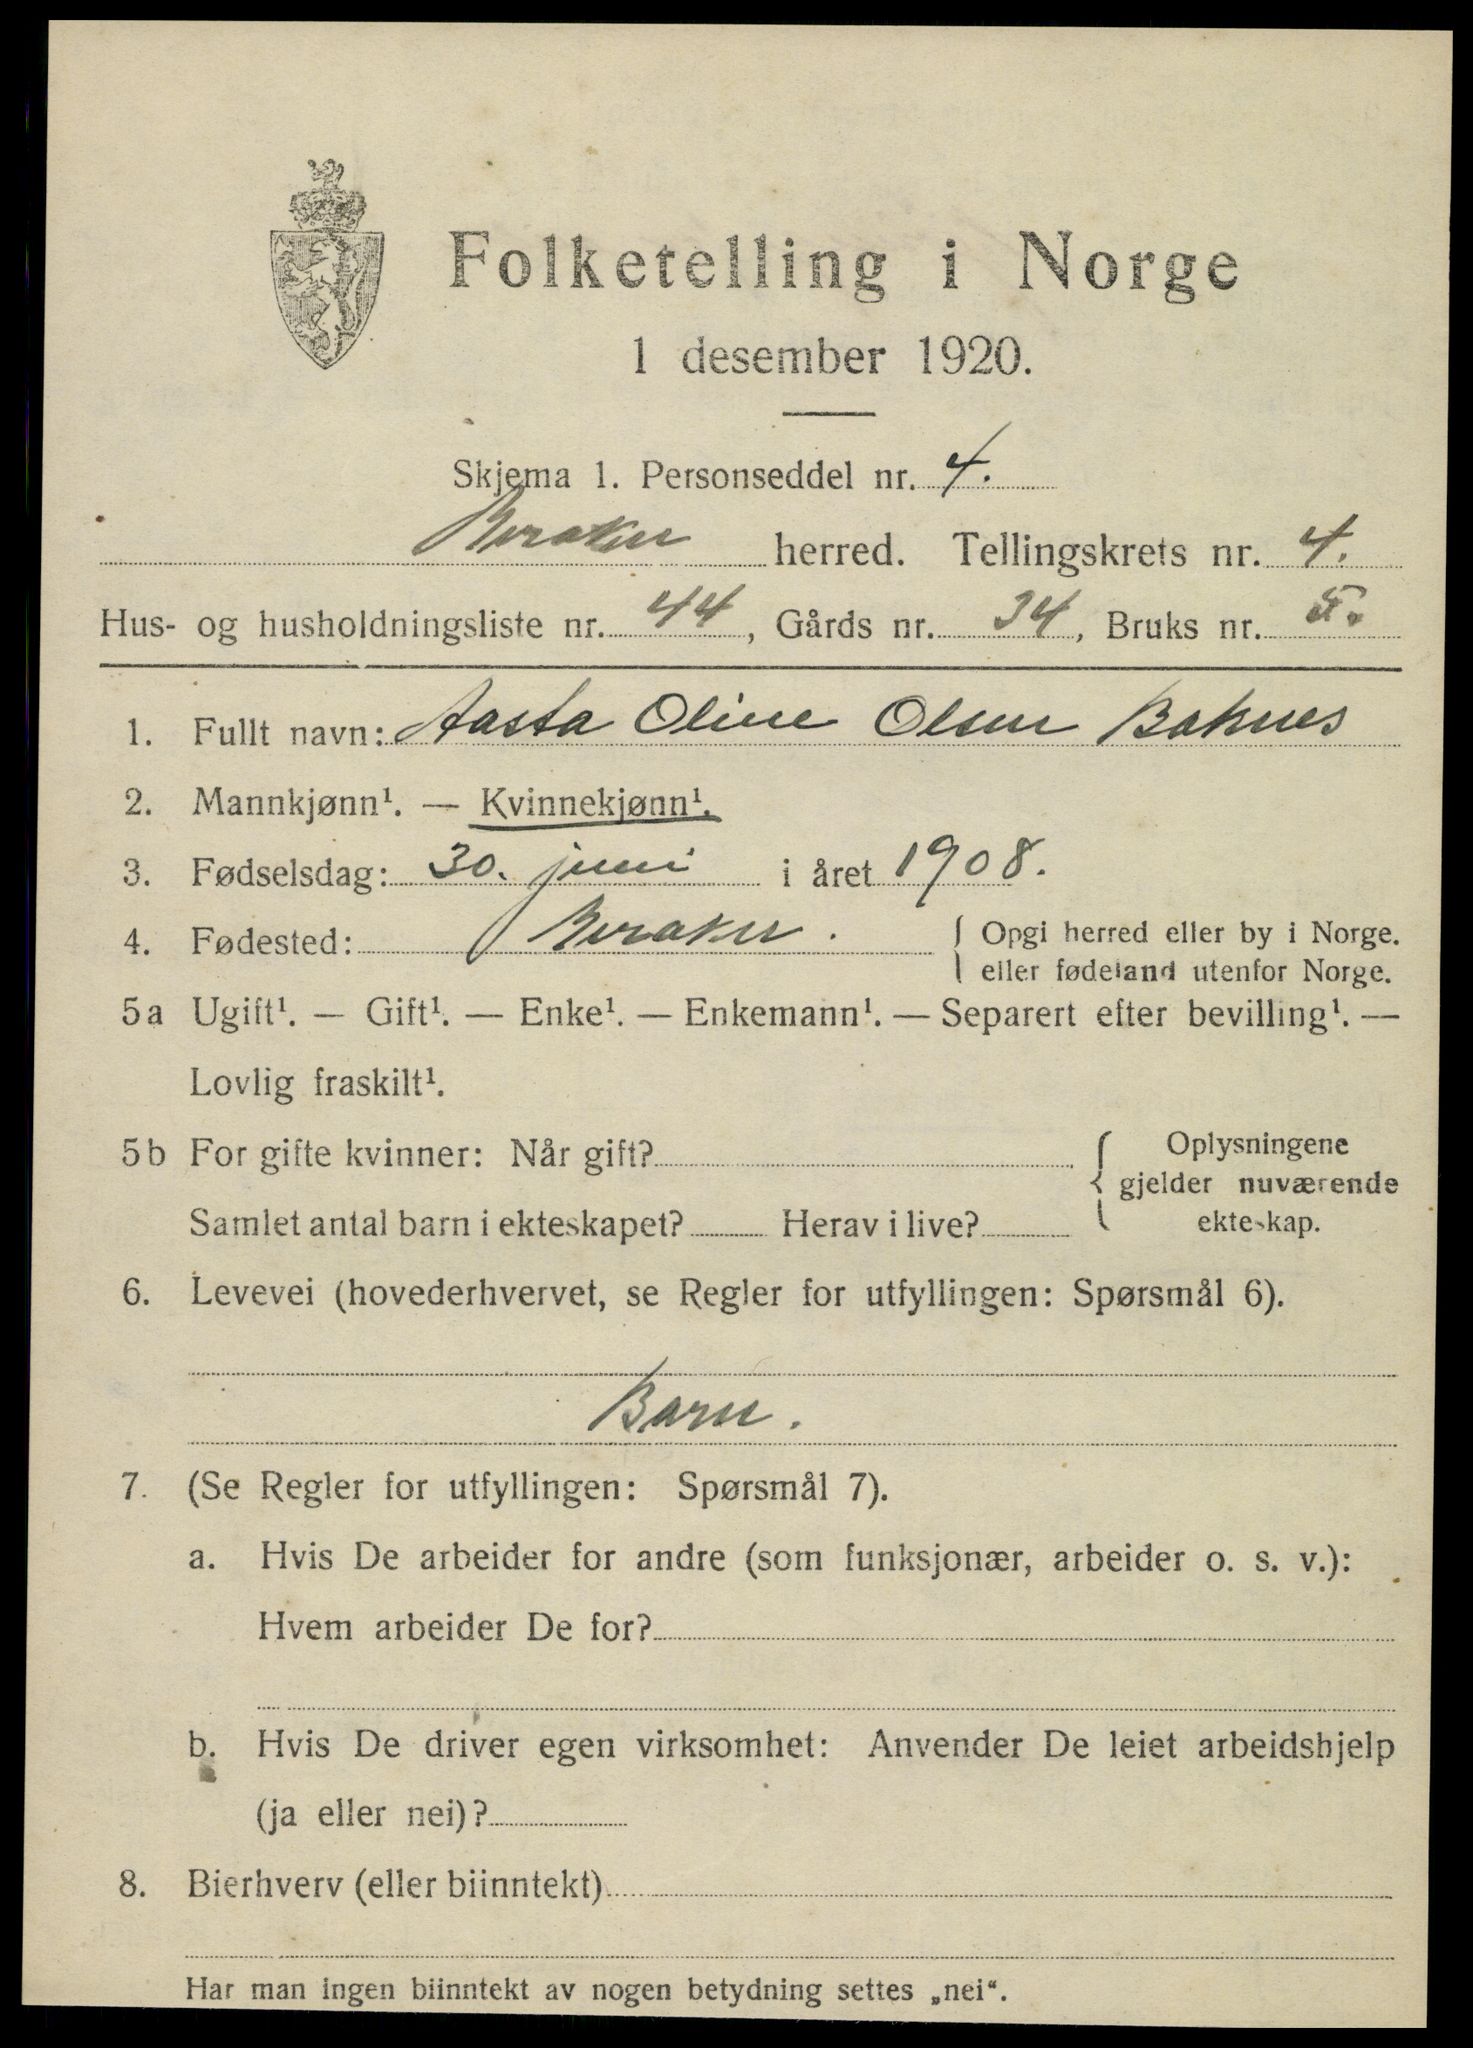 Folketelling i Norge
1 desember 1920.
Skjema 1. Personseddel nr. 4.
Beraker herred. Tellingskrets nr. 4.
Hus- og husholdningsliste nr. 44, Gårds nr. 34, Bruks nr. 5.
1. Fullt navn: Aasta Oline Olsen Baknes
2. Mannkjønn¹. — Kvinnekjønn¹.
3. Fødselsdag: 30. juni i året 1908.
4. Fødested: Beraker. { Opgi herred eller by i Norge.
eller fødeland utenfor Norge.
5a Ugift¹. — Gift¹. — Enke¹. — Enkemann¹. — Separert efter bevilling¹. —
Lovlig fraskilt¹.
5b For gifte kvinner: Når gift? { Oplysningene
gjelder nuværende
Samlet antal barn i ekteskapet? Herav i live? ekteskap.
6. Levevei (hovederhvervet, se Regler for utfyllingen: Spørsmål 6).
Barn.
7. (Se Regler for utfyllingen: Spørsmål 7).
a. Hvis De arbeider for andre (som funksjonær, arbeider o. s. v.):
Hvem arbeider De for?
b. Hvis De driver egen virksomhet: Anvender De leiet arbeidshjelp
(ja eller nei)?
8. Bierhverv (eller biinntekt)
Har man ingen biinntekt av nogen betydning settes „nei“.